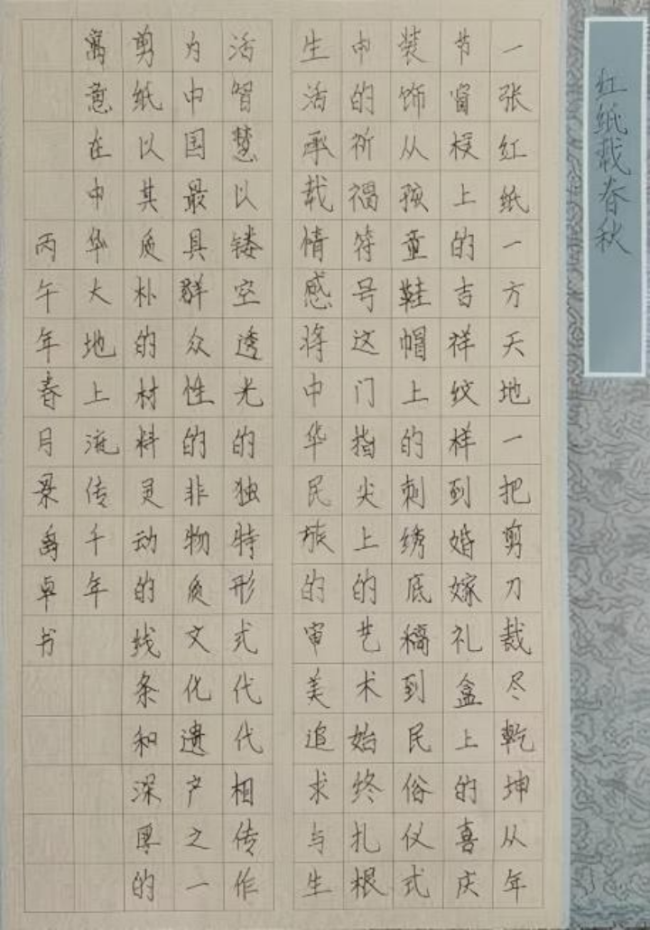 红纸载春秋
一张红纸一方天地一把剪刀裁尽乾坤从年
节窗棂上的吉祥纹样到婚嫁礼盒上的喜庆
装饰从孩童鞋帽上的刺绣底稿到民俗仪式
中的祈福符号这门指尖上的艺术始终扎根
生活承载情感将中华民族的审美追求与生
活智慧以镂空透光的独特形式代代相传作
为中国最具群众性的非物质文化遗产之一
剪纸以其质朴的材料灵动的线条和深厚的
寓意在中华大地上流传千年
丙午年春月景禹卓书